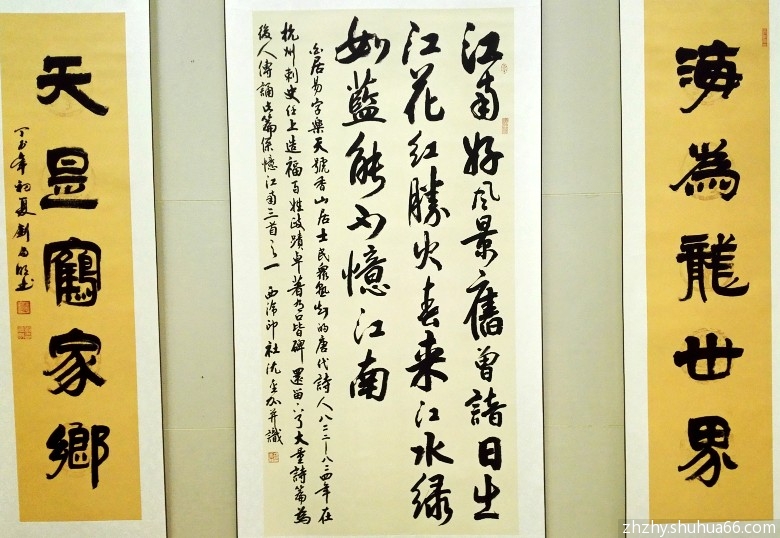 海為龍世界
江南好风景舊曾諳日出
江花红勝火春来江水绿
如藍能不憶江南
白居易字樂天號香山居士民衆熟知的唐代詩人八二二-八二四年在
杭州刺史任上造福百姓政蹟卓著有口皆碑還留下了大量詩篇為
後人傳誦此篇係憶江南三首之一 西泠印社沈并識
天是鶴家鄉
丁酉年初夏劉
zhzhy.shuhua66.com